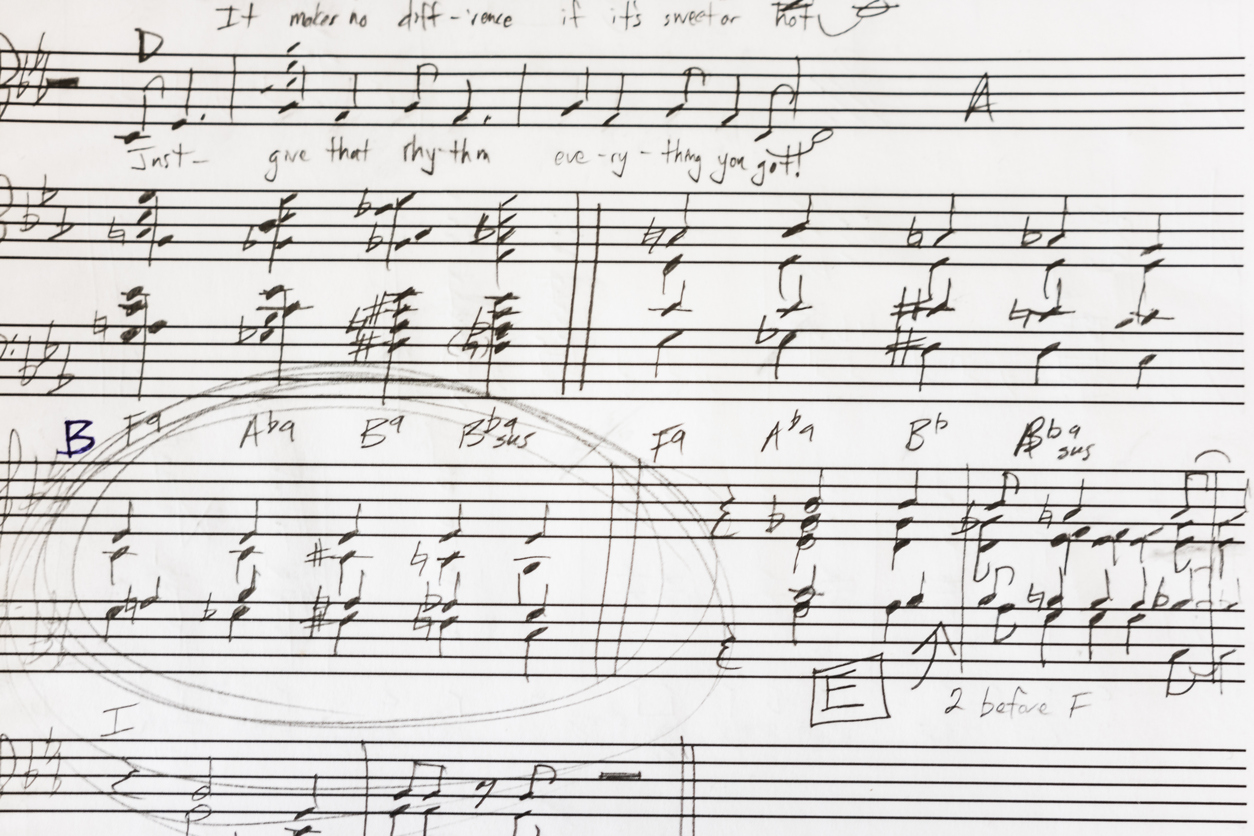 It makes no diff-'rence if it's sweet or hot
D
A
Just- give that rhy-thm eve-ry-thing you got!
B F9 Ab9 B9 Bb9sus F9 Ab9 Bb Bb9sus
E 2 before F
I